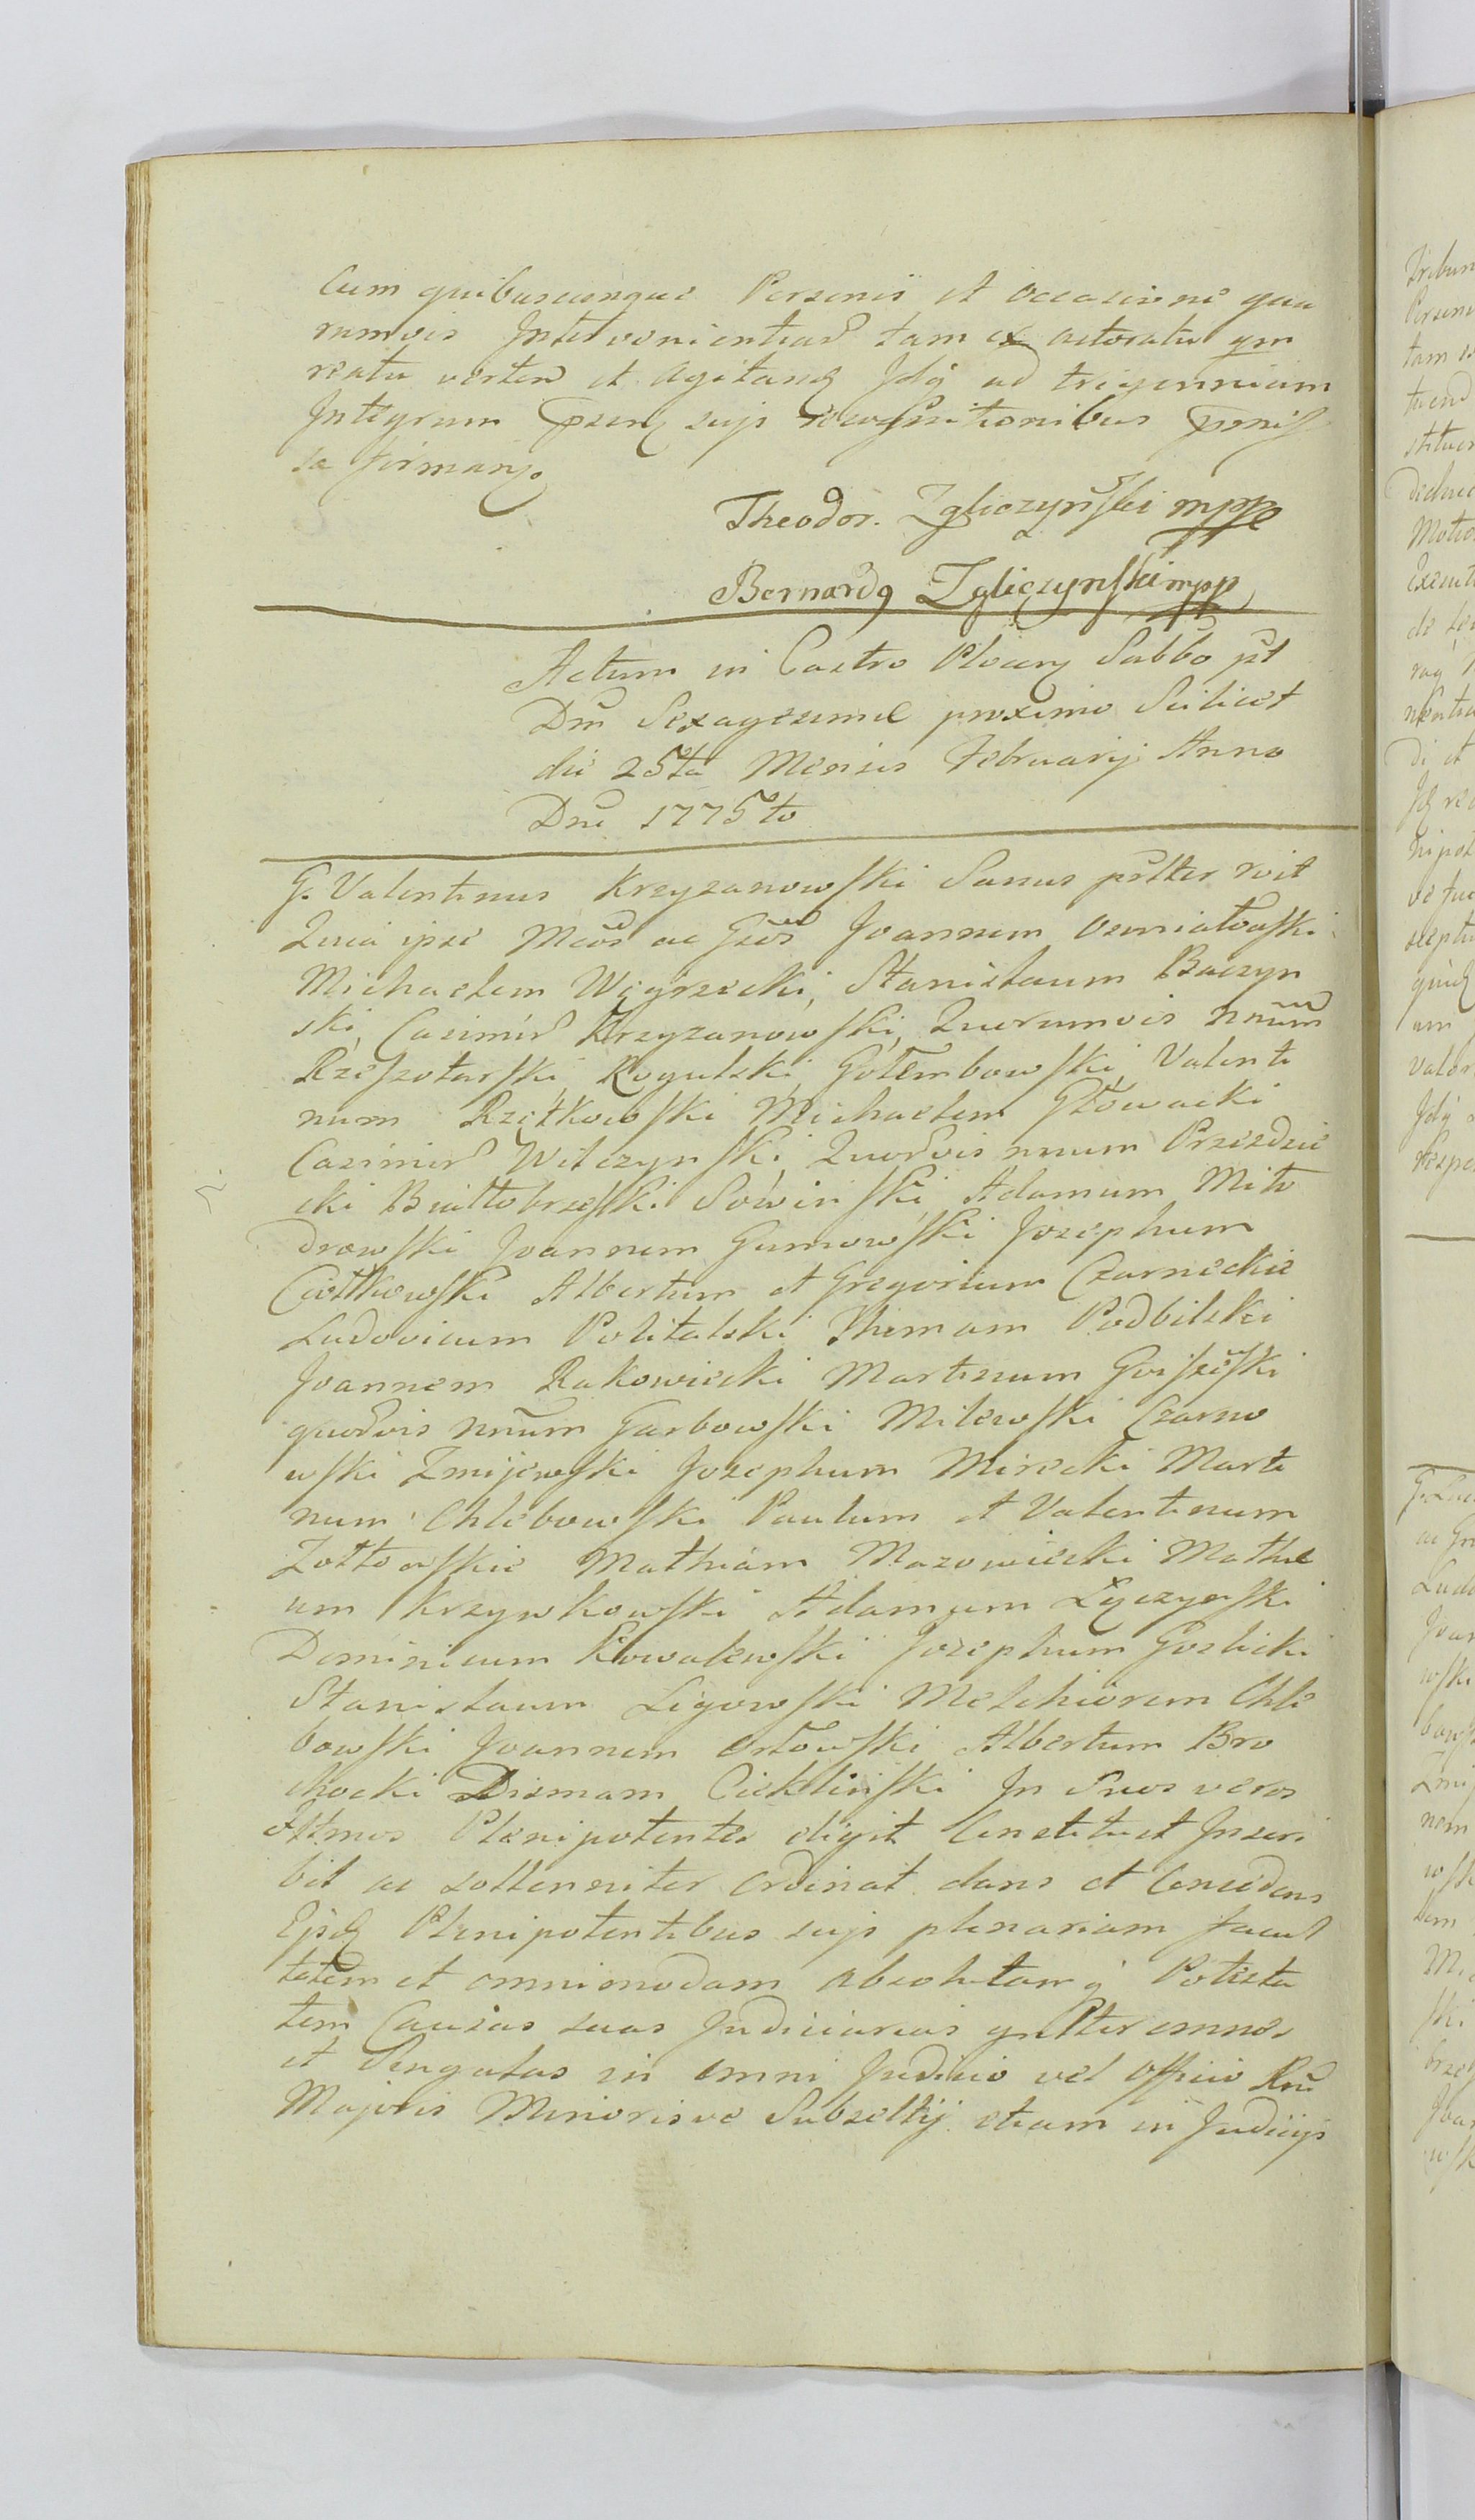 Cum quibuscunque Personis et occasione qua
rumvis Intervenientiar tam ex actoratu qm
reatu verten et agitanq Jdq ad trigennium
Integrum psenq sujs recognitionibus
se firmanq.
Theodor. Zgliczyński mppe
Bernardq Zgliczynski mpp
Actum in Castro Plocen Sabbo pst
Dm Sexagesimae proximo Scilicet
die 25ta Mensis Februarij Anno
Dni 1775to
G. Valentinus Krzyzanowski Sanus psltter rvit
Quia ipse Mcos ac Gsos Joannem Osmiałowski
Michaelem Węgrzecki, Stanislaum Baczyn
ski, Casimir Krzyzanowski, Quorumvis nnum
Rzeszotarski, Rogulski, Gołembowski, Valenti
num Rzętkowski Michaelem Głowacki
Casimir Wilczynski, Quorvis nnum Przezdzie
cki Białłobrzeski Sowinski, Adamum Miło
drowski Joannem Gumowski Josephum
Ciołkowski Albertum et Gregorium Czarneckie
Ludovicum Politalski Thomam Podbilski
Joannem Rakowiecki Martinum
quorvis nnum Garbowski Milewski Czarno
wski Zmijewski Josephum Mirecki Marti
num Chlebowski Paulum et Valentinum
Zołtowskie Mathiam Mazowiecki Mathe
um Krzywkowski Adamum Łączynski
Dominicum Kowalewski Josephum Goslicki
Stanislaum Ligowski Melchiorem Chle
bowski Joannem Orłowski Albertum Bro
chocki Dismam Ciekliński In Suos veros
Plenipotentes eligit Constituit Inscri
bit ac sollenniter ordinat dans et Concedens
Ejsdq Plenipotentibus sujs plenariam facul
tatem et omnimodam absolutamq Potesta
tem Causas suas Judiciarias gnltter omnes
et Singulas in omni Judicio vel Officio Rni
Majoris Minorisve Subsellij etiam in Judicijs
Tribun
Person
tam